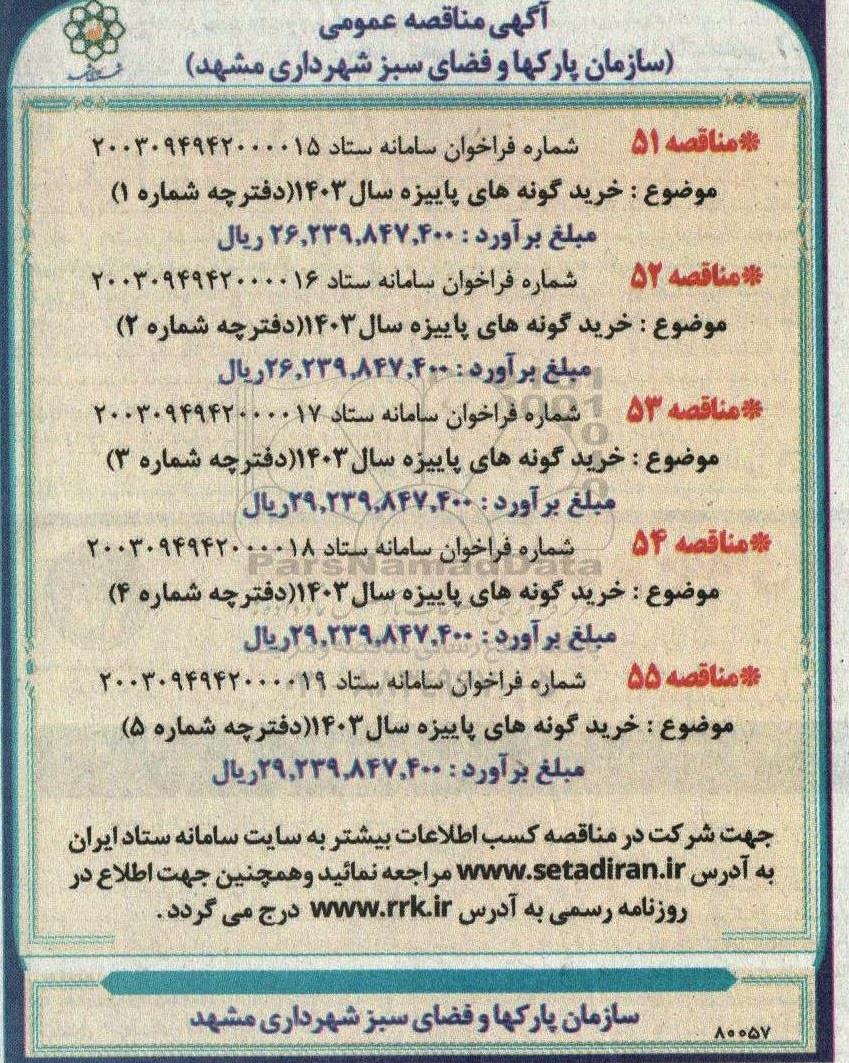 آگهی مناقصه عمومی
(سازمان پارکها و فضای سبز شهرداری مشهد)
❋مناقصه ۵۱ شماره فراخوان سامانه ستاد ۲۰۰۳۰۹۴۹۴۲۰۰۰۰۱۵
موضوع : خرید گونه های پاییزه سال۱۴۰۳(دفترچه شماره ۱)
مبلغ برآورد : ۲۶,۲۳۹,۸۴۷,۴۰۰ ریال
❋مناقصه ۵۲ شماره فراخوان سامانه ستاد ۲۰۰۳۰۹۴۹۴۲۰۰۰۰۱۶
موضوع : خرید گونه های پاییزه سال۱۴۰۳(دفترچه شماره ۲)
مبلغ برآورد : ۲۶,۲۳۹,۸۴۷,۴۰۰ریال
❋مناقصه ۵۳ شماره فراخوان سامانه ستاد ۲۰۰۳۰۹۴۹۴۲۰۰۰۰۱۷
موضوع : خرید گونه های پاییزه سال۱۴۰۳(دفترچه شماره ۳)
مبلغ برآورد : ۲۹,۲۳۹,۸۴۷,۴۰۰ریال
❋مناقصه ۵۴ شماره فراخوان سامانه ستاد ۲۰۰۳۰۹۴۹۴۲۰۰۰۰۱۸
ParsNamadData
موضوع : خرید گونه های پاییزه سال۱۴۰۳(دفترچه شماره ۴)
مبلغ برآورد : ۲۹,۲۳۹,۸۴۷,۴۰۰ریال
❋مناقصه ۵۵ شماره فراخوان سامانه ستاد ۲۰۰۳۰۹۴۹۴۲۰۰۰۰۱۹
موضوع : خرید گونه های پاییزه سال۱۴۰۳(دفترچه شماره ۵)
مبلغ برآورد : ۲۹,۲۳۹,۸۴۷,۴۰۰ریال
جهت شرکت در مناقصه کسب اطلاعات بیشتر به سایت سامانه ستاد ایران
به آدرس www.setadiran.ir مراجعه نمائید وهمچنین جهت اطلاع در
روزنامه رسمی به آدرس www.rrk.ir درج می گردد.
سازمان پارکها و فضای سبز شهرداری مشهد
۸۰۰۵۷